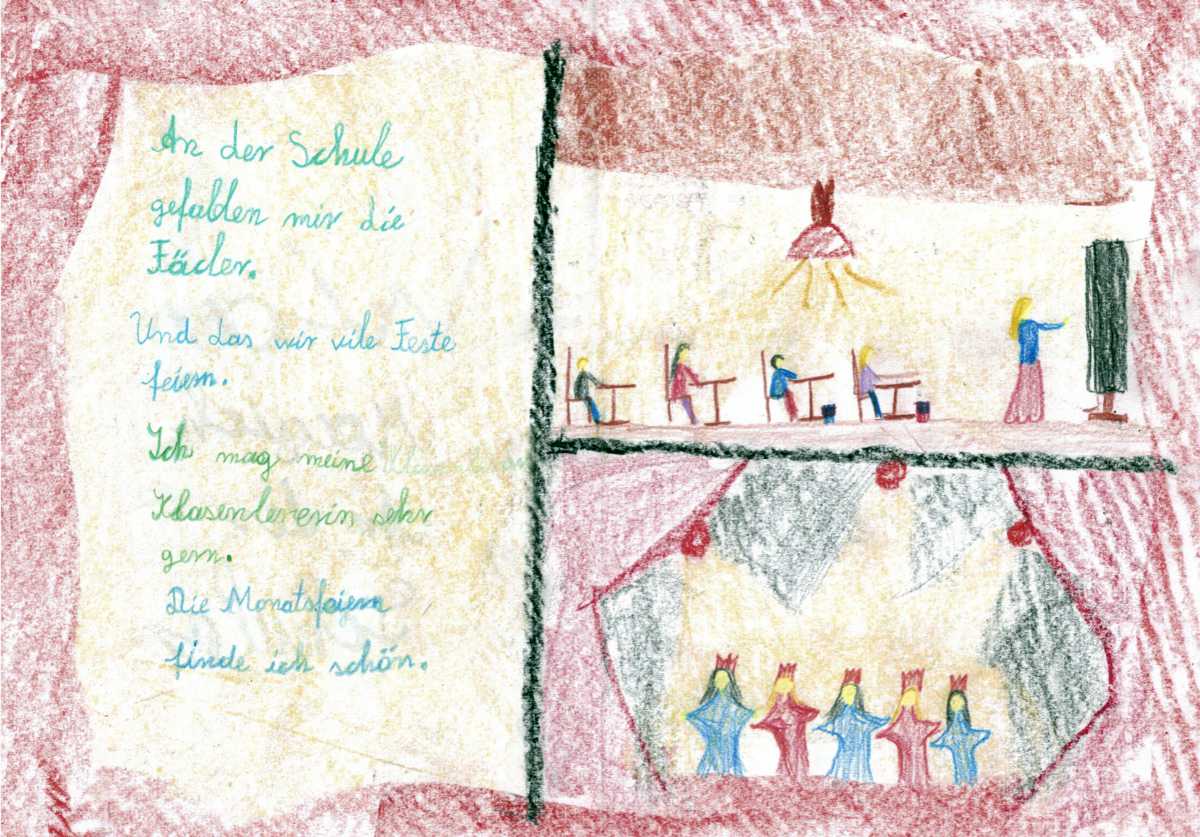 An der Schule
gefallen mir die
Fächer.
Und das wir vile Feste
feiern.
Ich mag meine
Klasenlererin sehr
gern.
Die Monatsfeiern
finde ich schön.